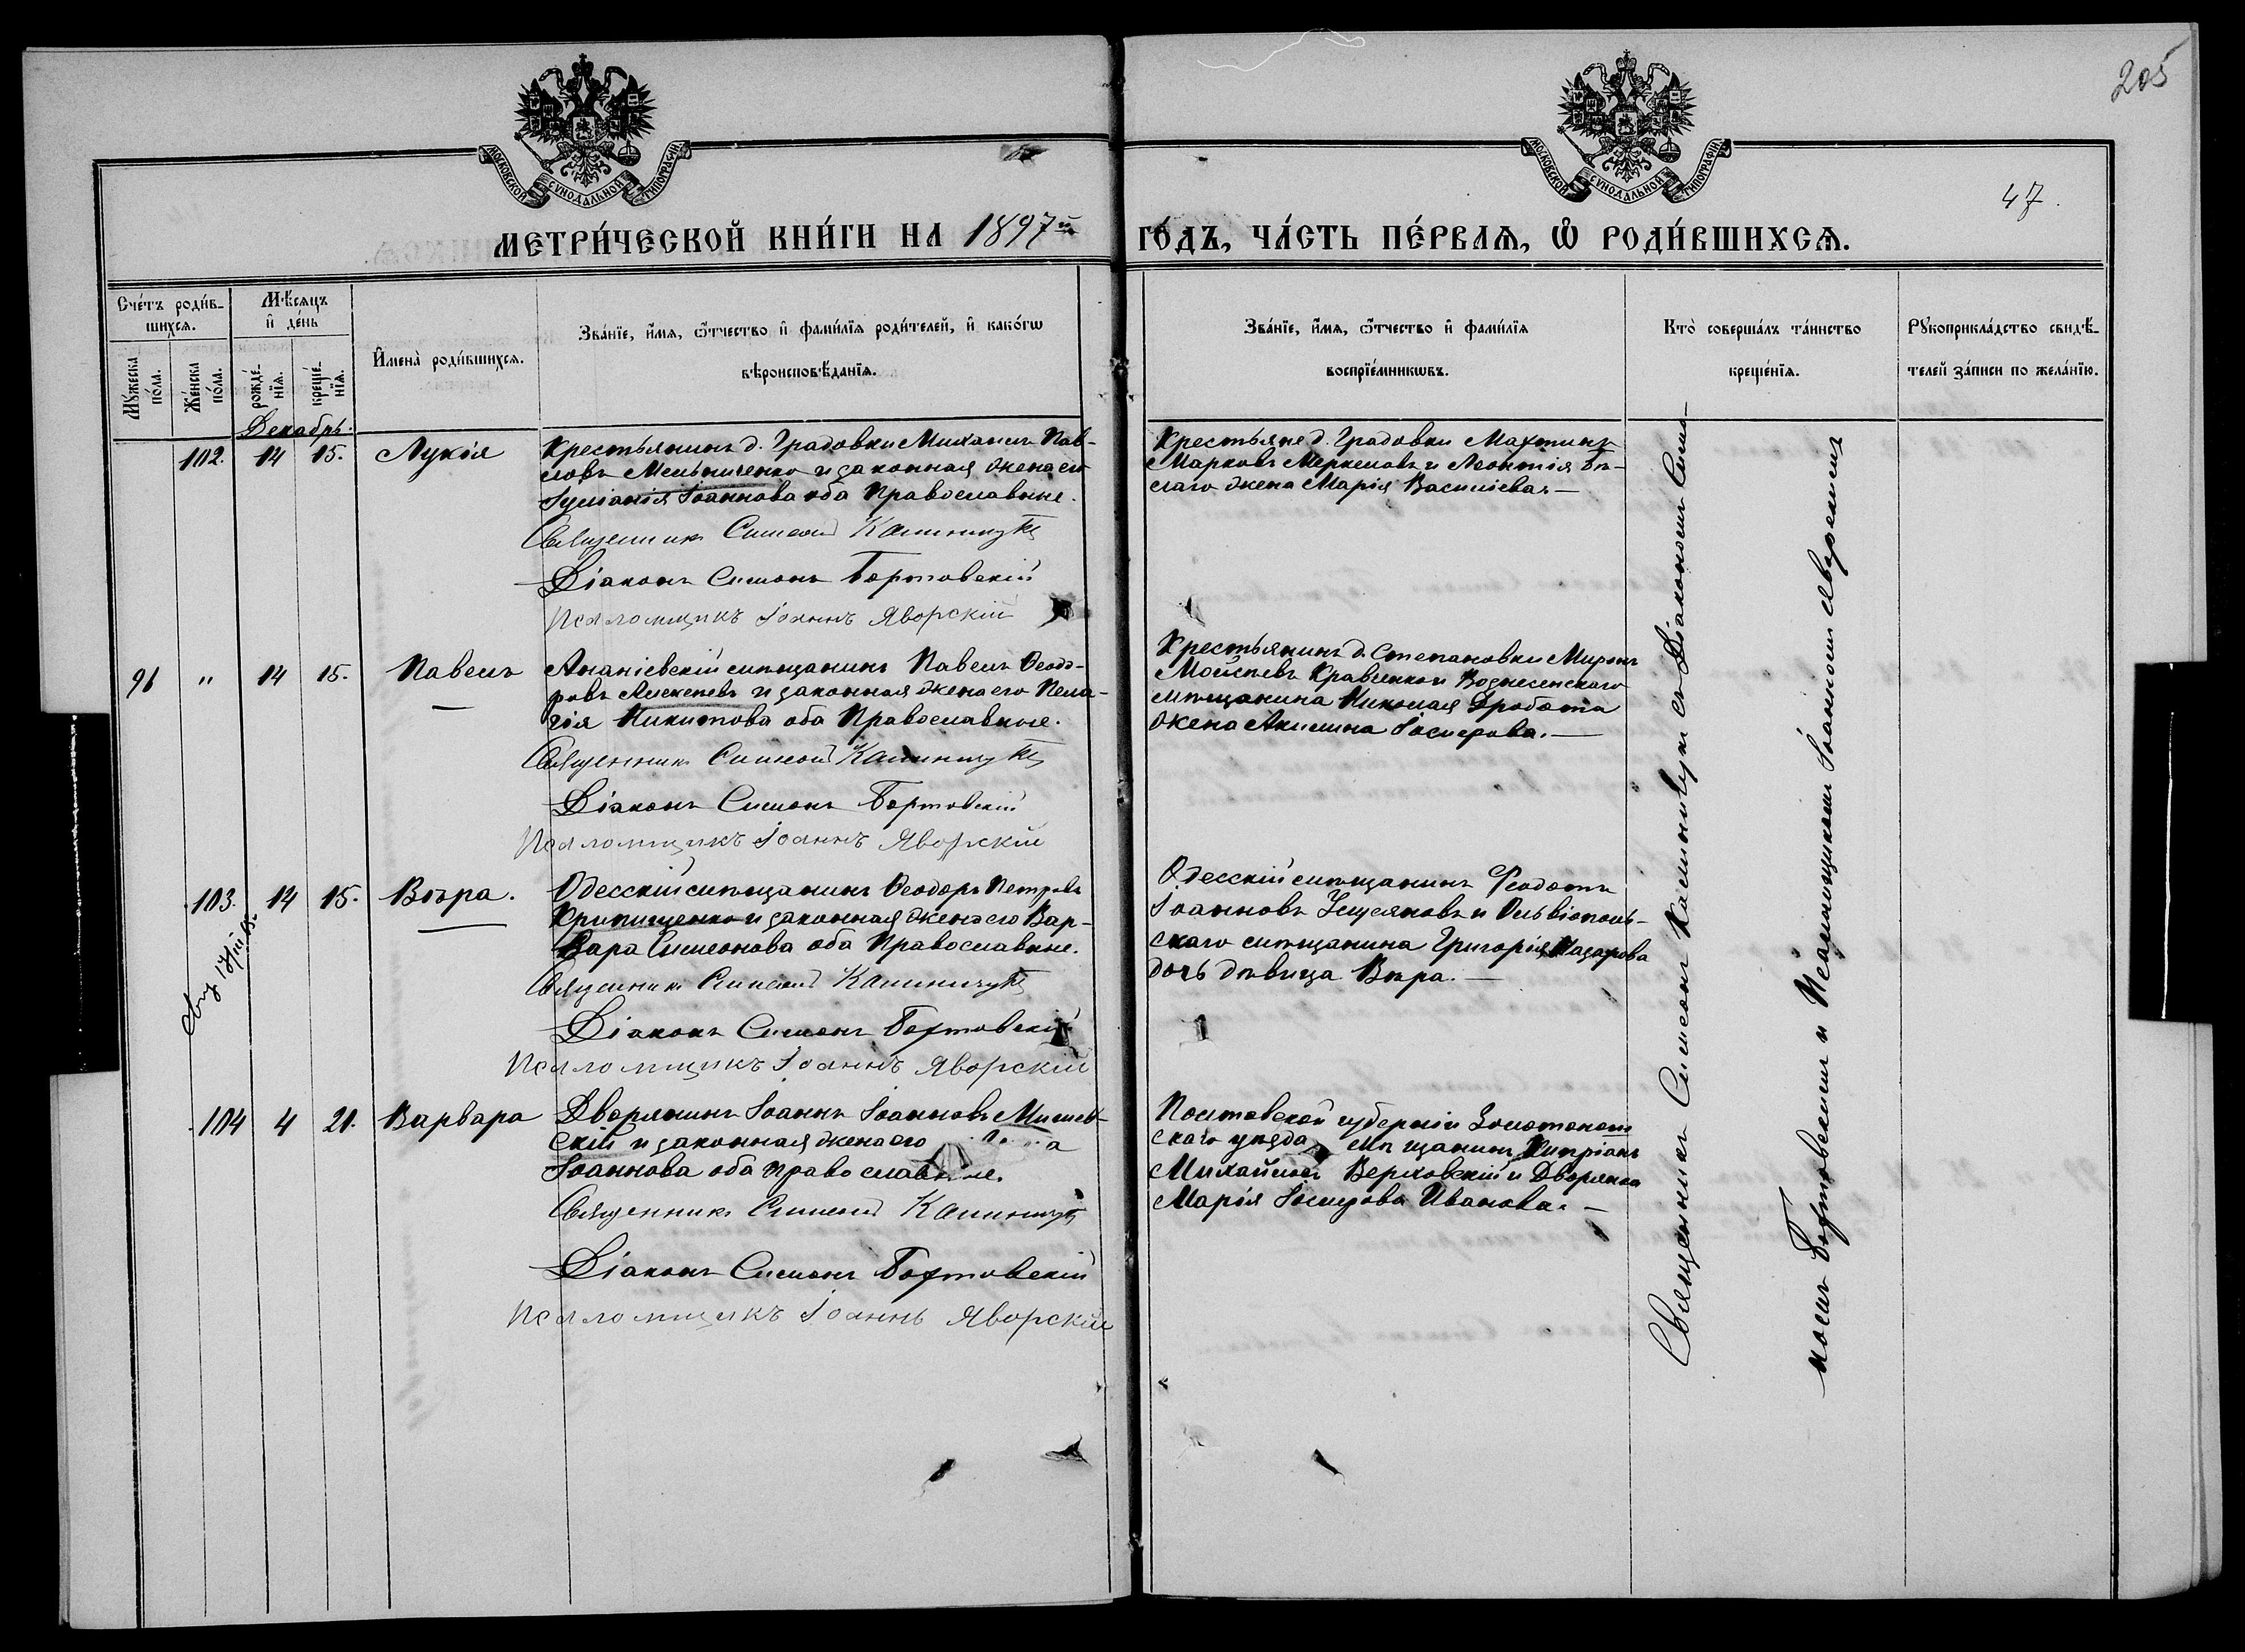 205
МОСКОВСКОЙ СѴНОДАЛЬНОЙ ТИПОГРАФІИ
МОСКОВСКОЙ СѴНОДАЛЬНОЙ ТИПОГРАФІИ
47.
МЕТРИ́ЧЕСКОЙ КНИ́ГИ НА 1897й
ГО́ДЪ, ЧА́СТЬ ПЕ́РВАЯ, Ѡ҆ РОДИ́ВШИХСѦ.
Сче́тъ роди́в-
шихсѧ.
Мѹ́жеска по́ла.
Же́нска по́ла.
Мѣ́сѧцъ
и҆ де́нь
рожде́-
нїѧ.
креще́-
нїѧ.
И҆мена̀ роди́вшихсѧ.
Зва́нїе, и҆́мѧ, ѻ҆́тчество и҆ фами́лїѧ роди́телей, и҆ како́гѡ
вѣроисповѣ́данїѧ.
Зва́нїе, и҆́мѧ, ѻ҆́тчество и҆ фами́лїѧ
воспрїе́мникѡвъ.
Кто̀ соверша́лъ та́инство
креще́нїѧ.
Рѹкоприкла́дство свидѣ́-
телей за́писи по жела́нїю.
Декабрь.
102. 14 15. Лукія
Крестьянинъ д. Градовки Михаилъ Пав-
ловъ Мельниченко и законная жена его
Іуліанія Іоаннова оба Православные.
Священникъ Симеонъ Калинчукъ
Діаконъ Симонъ Бортовскій
Псаломщикъ Іоаннъ Яворскій
Крестьяне д. Градовки Мартинъ
Марковъ Меркеловъ и Леонтія Бѣ-
лаго жена Марія Василіева.—
91 " 14 15. Павелъ
Ананіевскій мѣщанинъ Павелъ Ѳеодо-
ровъ Алексѣевъ и законная жена его Пела-
гія Никитова оба Православные.
Священникъ Симеонъ Калинчукъ
Діаконъ Симонъ Бортовскій
Псаломщикъ Іоаннъ Яворскій
Крестьянинъ д. Степановки Миронъ
Моисѣевъ Кравченко и Вознесенскаго
мѣщанина Николая Дробота
жена Акилина Іосифова.—
103. 14 15. Вѣра.
Одесскій мѣщанинъ Ѳеодоръ Петровъ
Крипищенко и законная жена его Вар-
вара Симеонова оба Православные.
Священникъ Симеонъ Калинчукъ
Діаконъ Симонъ Бортовскій
Псаломщикъ Іоаннъ Яворскій
Одесскій мѣщанинъ Ѳеодотъ
Іоанновъ и Ольвіополь-
скаго мѣщанина Григорія Назарова
дочь дѣвица Вѣра.—
104 4 21. Варвара
Дворянинъ Іоаннъ Іоанновъ Милев-
скій и законная жена его
Іоаннова оба православные.
Священникъ Симеонъ Калинчукъ
Діаконъ Симонъ Бортовскій
Псаломщикъ Іоаннъ Яворскій
Полтавской губерніи Золотонош-
скаго уѣзда мѣщанинъ Кипріанъ
Михайловъ Верховскій и Дворянка
Марія Іосифова Иванова.—
Священникъ Симеонъ Калинчукъ съ Діакономъ Симо-
номъ Бортовскимъ и Псаломщикомъ Іоанномъ Яворскимъ